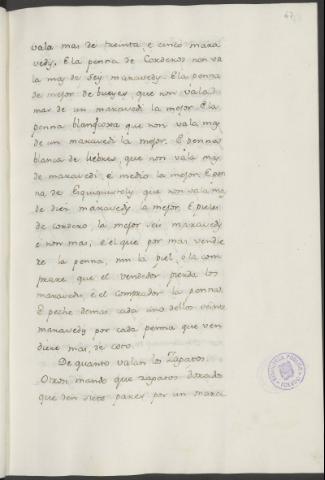 67
vala mas de treinta, e cinco mara
vedy. E la penna de Corderos non va
la mas de sey maravedy. E la penna
de mejor de bueyes, que non vala
mas de un maravedi la mejor. E la
penna blanquera que non vala mas
de un maravedi la mejor. E penna
blanca de liebres, que non vala mas
de maravedi, e medio la mejor. E pen
na de Esquiroles, que non vala mas
de diez maravedy la mejor. E pieles
de cordero, la mejor seis maravedy
e non mas, e el que por mas vendie
re la penna, nin la piel, o la com
prare que el vendedor pierda los
maravedis, e el comprador la penna.
E peche demas cada uno dellos veinte
maravedy por cada penna que ven
diere mas de coto.
De quanto valan los Zapatos.
Otrosi mando que zapatos dorado
que den siete pares por un mara
BIBLIOTECA PUBLICA
TOLEDO